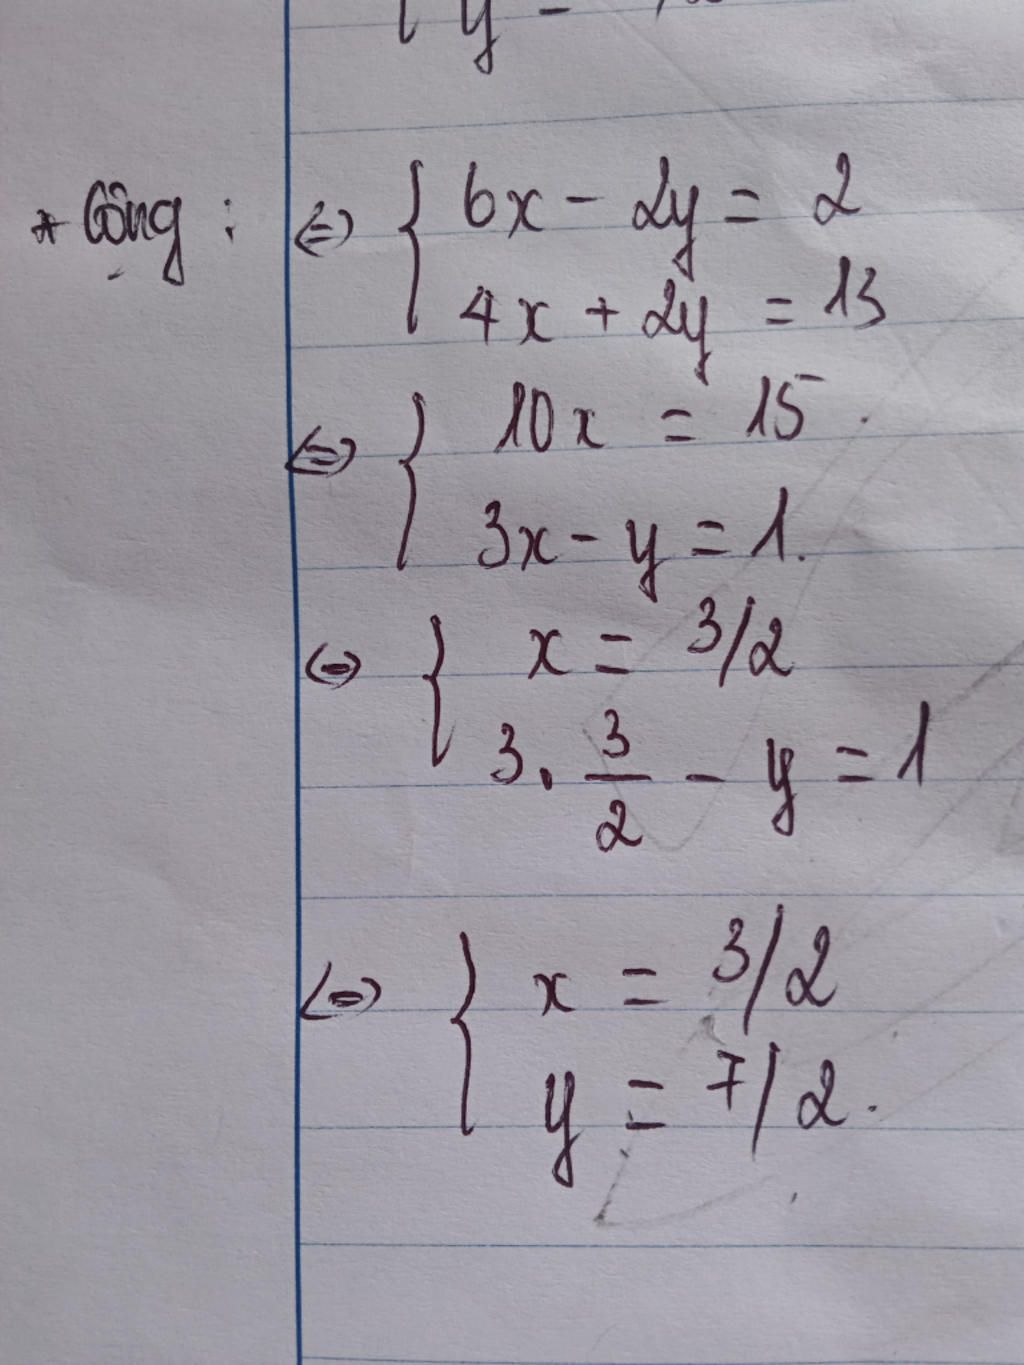 y =
* Cộng : ⇔ { 6x - 2y = 2
4x + 2y = 13
⇔ { 10x = 15.
3x - y = 1.
⇔ { x = 3/2
3 . 3/2 - y = 1
⇔ { x = 3/2
y = 7/2.